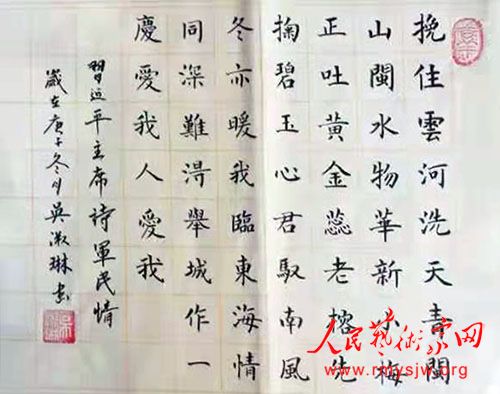 挽住雲河洗天青閩
山閩水物華新小梅
正吐黃金蕊老榕先
掬碧玉心君馭南風
冬亦暖我臨東海情
同深難淂舉城作一
慶愛我人愛我
習近平主席詩軍民情
歲在庚子冬月吳淑琳書
人民藝術家网
www.rmysjw.org